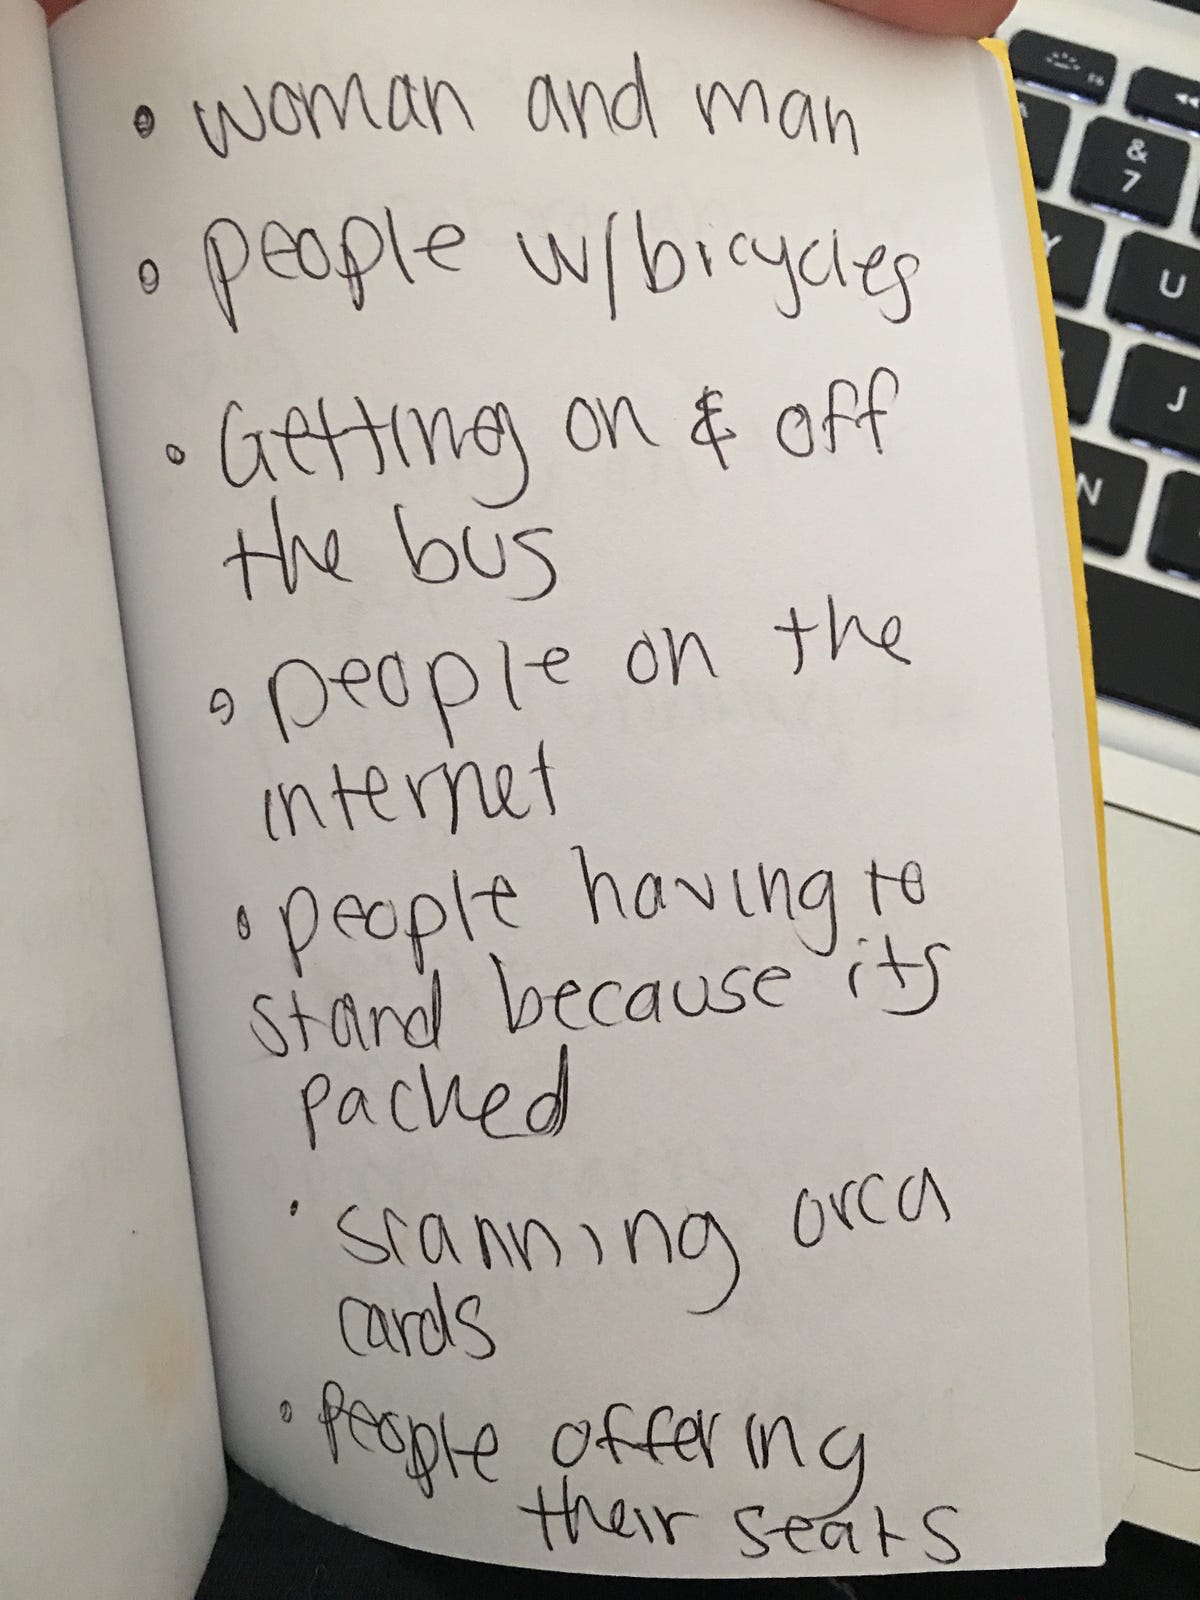 • woman and man
• people w/bicycles
• Getting on & off
the bus
• people on the
internet
• people having to
stand because its
packed
• scanning orca
cards
• People offering
their seats
F6
&
7
Y
U
J
N